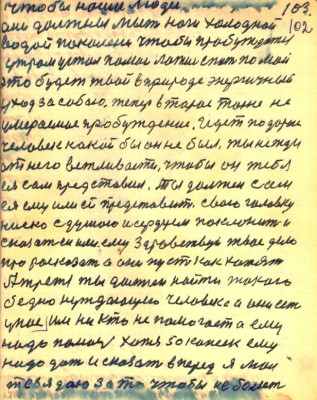 чтобы наши люди,
103.
102
они должны мыть ноги холодной
водой по колени чтобы пробуждаться
утром устал помой ложись спать помой
это будет твой в природе энергичный
уход за собою. теперь второе тоже не
умераемое пробуждение. Идет по дороге
человек какой бы он не был, ты не жди
от него ветливасти, чтобы он тебе
сам представил. Ты должен
ему или ей представить свою головку
ниско с душою и сердцем поклонить и
сказать ей или ему Здравствуй твое дело
про росказать а они пусть как хотят
А третье ты должен найти такого
бедно нуждающего человека а они есть
им ни кто не помогает а ему
надо помоч хотя бы копейку ему
надо дать и сказать вперед я мол
тебя даю за то чтобы не болеть